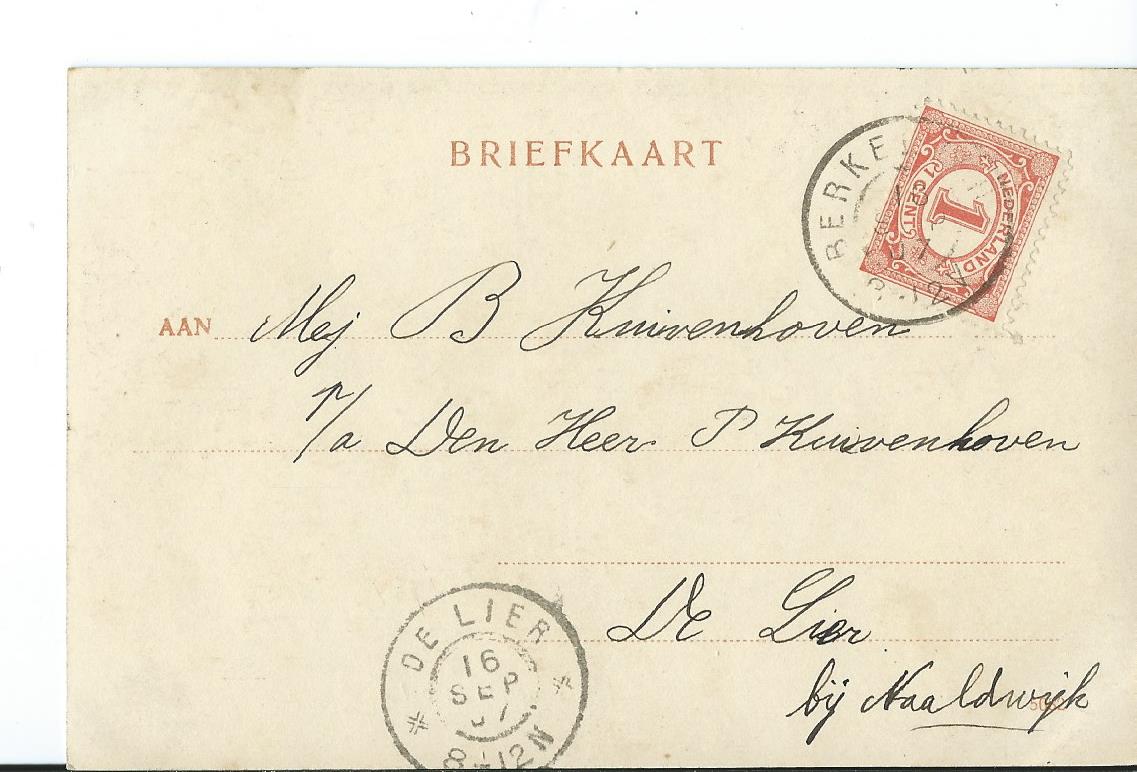 BRIEFKAART
NEDERLAND
1
1 CENT
BERKEL
AAN Mej B Kuivenhoven
P/a Den Heer P Kuivenhoven
De Lier
bij Naaldwijk
DE LIER
16
SEP
07
8-12N